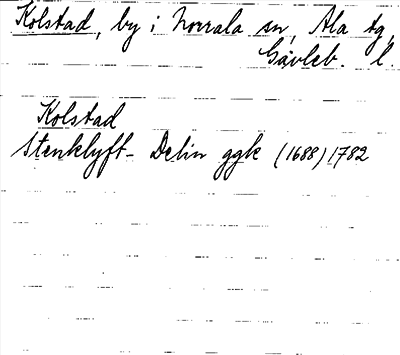 Kolstad, by i Norrala sn, Ala tg,
Gävleb. l.
Kolstad
Stenklyft- Delin ggk (1688) 1782